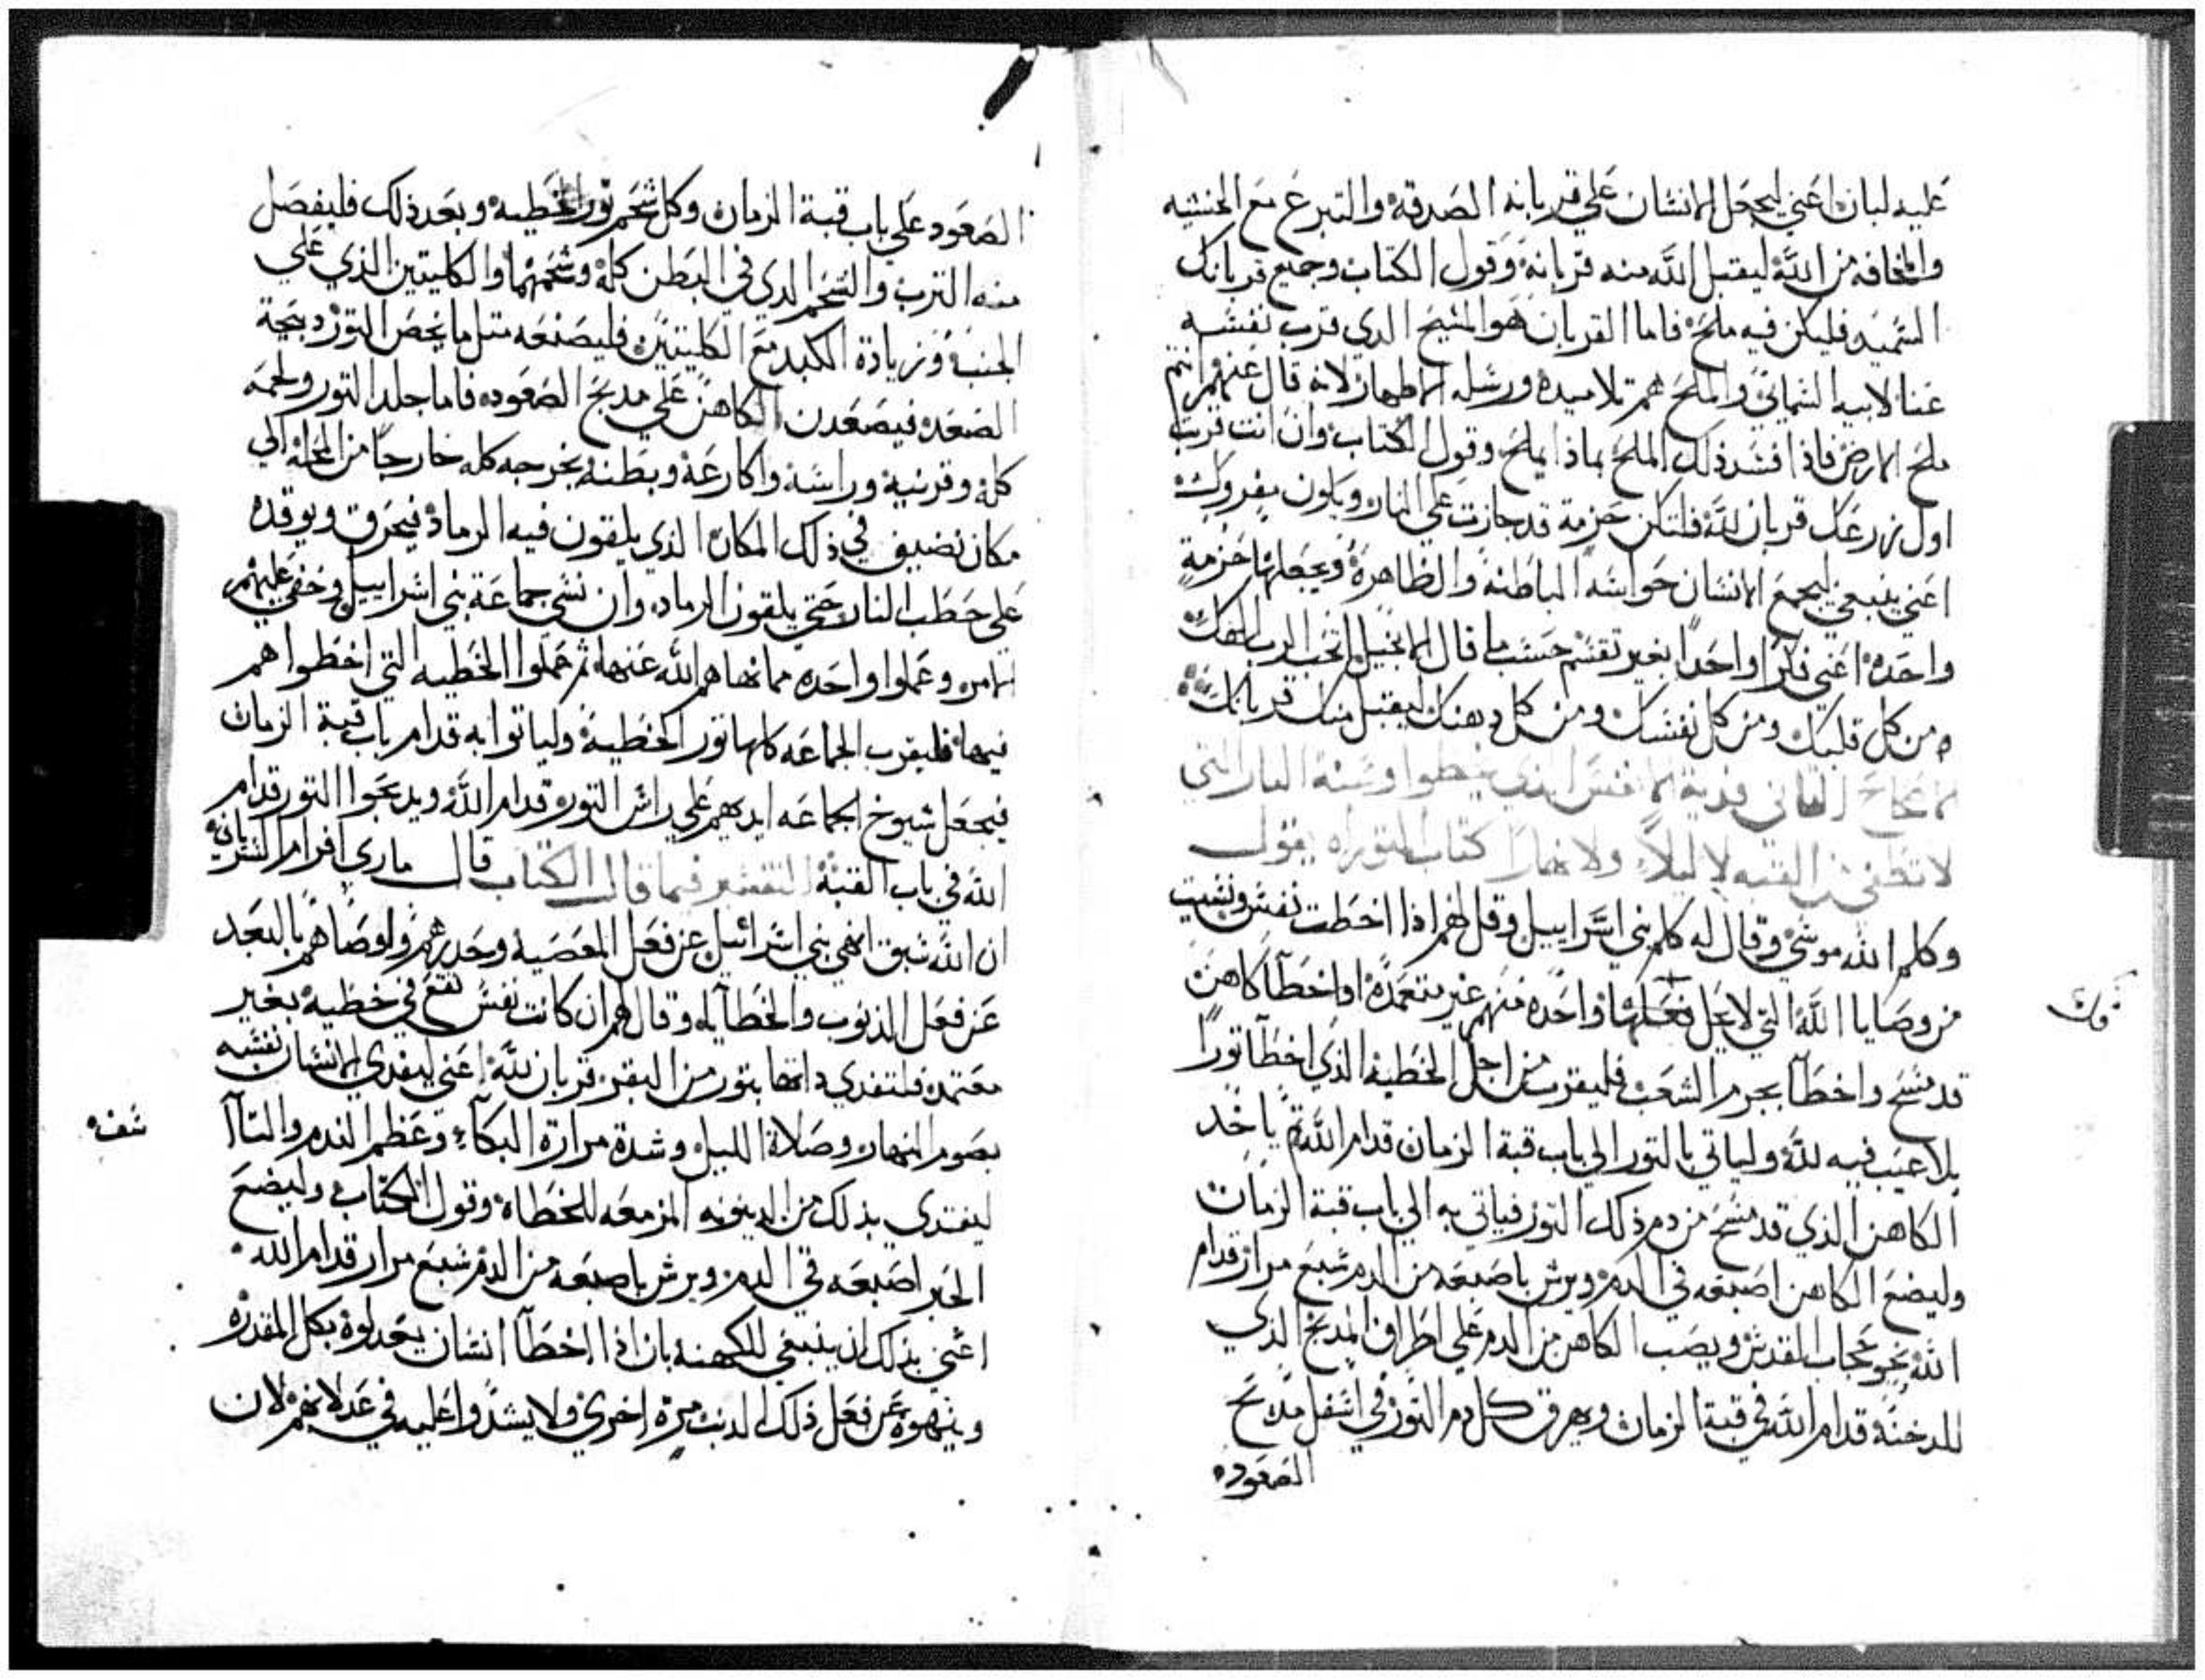 عليه لبان اعني ليجعل الانسان علي قربانه الصدقه والتبرع مع الخشيه
والمخافه من الله ليقتبل الله منه قربانه وقول الكتاب وجميع قربانك
السميد فليكن فيه ملح فاما القربان هو المسيح الدي قرب نفسه
عنا لابيه السماني والملح هم تلاميده ورسله الاطهار لانه قال عنهم انتم
ملح الارض فاذا افسد ذلك الملح بماذا يملح وقول الكتاب وان انت قربت
اول زرعك قربان لله فلتكن حزمة قد جازت علي النار ويكون مفروك
اعني ينبغي ليجمع الانسان حواسه الباطنة والظاهرة ويجعلها حزمة
واحده اعني فكرا واحدا بغير تقسم حسب ما قال الانجيل اتحب الرب الهك
من كل قلبك ومن كل نفسك ومن كل دهنك ليقتبل منك قربانك
الاصحاح الثاني فدية الانفس الدي يخطوا وسنة النار التي
لا تطفي من القبه لا ليلا ولا نهارا كتاب التوراه يقول
وكلم الله موسي وقال له كلم بني اسراييل وقل لهم اذا اخطت نفس ونسيت
من وصايا الله التي لا يحل فعلها واحده منهم غير متعمدة او اخطا كاهن
قد مسح واخطا بجرم الشعب فليقرب من اجل الخطية الذي اخطا تورا
بلا عيب فيه لله ولياتي بالتور الي باب قبة الزمان قدام الله ثم ياخد
الكاهن الذي قد مسح من دم ذلك التور فياتي به الي باب قبة الزمان
وليضع الكاهن اصبعه في الدم ويرش باصبعه من الدم سبع مرار قدام
الله نحو حجاب المقدس ويصب الكاهن من الدم علي اطراف المدبح الذي
للدخنة قدام الله في قبة الزمان ويهرق كل دم التور في اسفل مدبح
الصعود
فك
الصعود علي باب قبة الزمان وكل شحم تور الخطيه وبعد ذلك فليفصل
منه الترب والشحم الدي في البطن كله وشحمهما والكليتين الذي علي
الجنب وزيادة الكبد مع الكليتين فليصنعه متل ما يخص التور دبيحة
الصعده فيصعدن الكاهن علي مدبح الصعوده فاما جلد التور ولحمه
كله وقرنيه وراسه واكارعه وبطنه يخرجه كله خارجا من المحله الي
مكان نضيف في ذلك المكان الذي يلقون فيه الرماد فيحرق ويوقده
علي حطب النار حتي يلقون الرماد وان نسي جماعة بني اسراييل وخفي عليهم
الامر وعملوا واحده مما نهاهم الله عنها ثم عملوا الخطيه التي اخطوا هم
فيها فليقرب الجماعه كلها تور الخطية ولياتوا به قدام باب قبة الزمان
فيجعل شيوخ الجماعه ايديهم علي راس التور قدام الله ويدبحوا التور قدام
الله في باب القبة التفسير فيما قال الكتاب قال ماري افرام السرياني
ان الله سبق انهي بني اسرائيل عن فعل المعصية وحدرهم واوصاهم بالبعد
عن فعل الدنوب والخطايا وقال لهم ان كانت نفس تقع في خطية بغير
معتمده فلتفدي داتها بتور من البقر قربان لله اعني ليفدي الانسان نفسه
بصوم النهار وصلاة الليل وشدة مرارة البكاء وعظم الندم والتاا
ليفتدى بذلك من الدينونه المزمعه للخطاه وقول الكتاب وليضع
الحبر اصبعه في الدم ويرش باصبعه من الدم سبع مرار قدام الله
اعني بذلك ان ينبغي للكهنه بان اذا اخطا انسان يعدلوه بكل المقدره
وينهوه عن فعل ذلك الدنب مرة اخري ولا يشدوا عليه في عدلانهم لان
شف